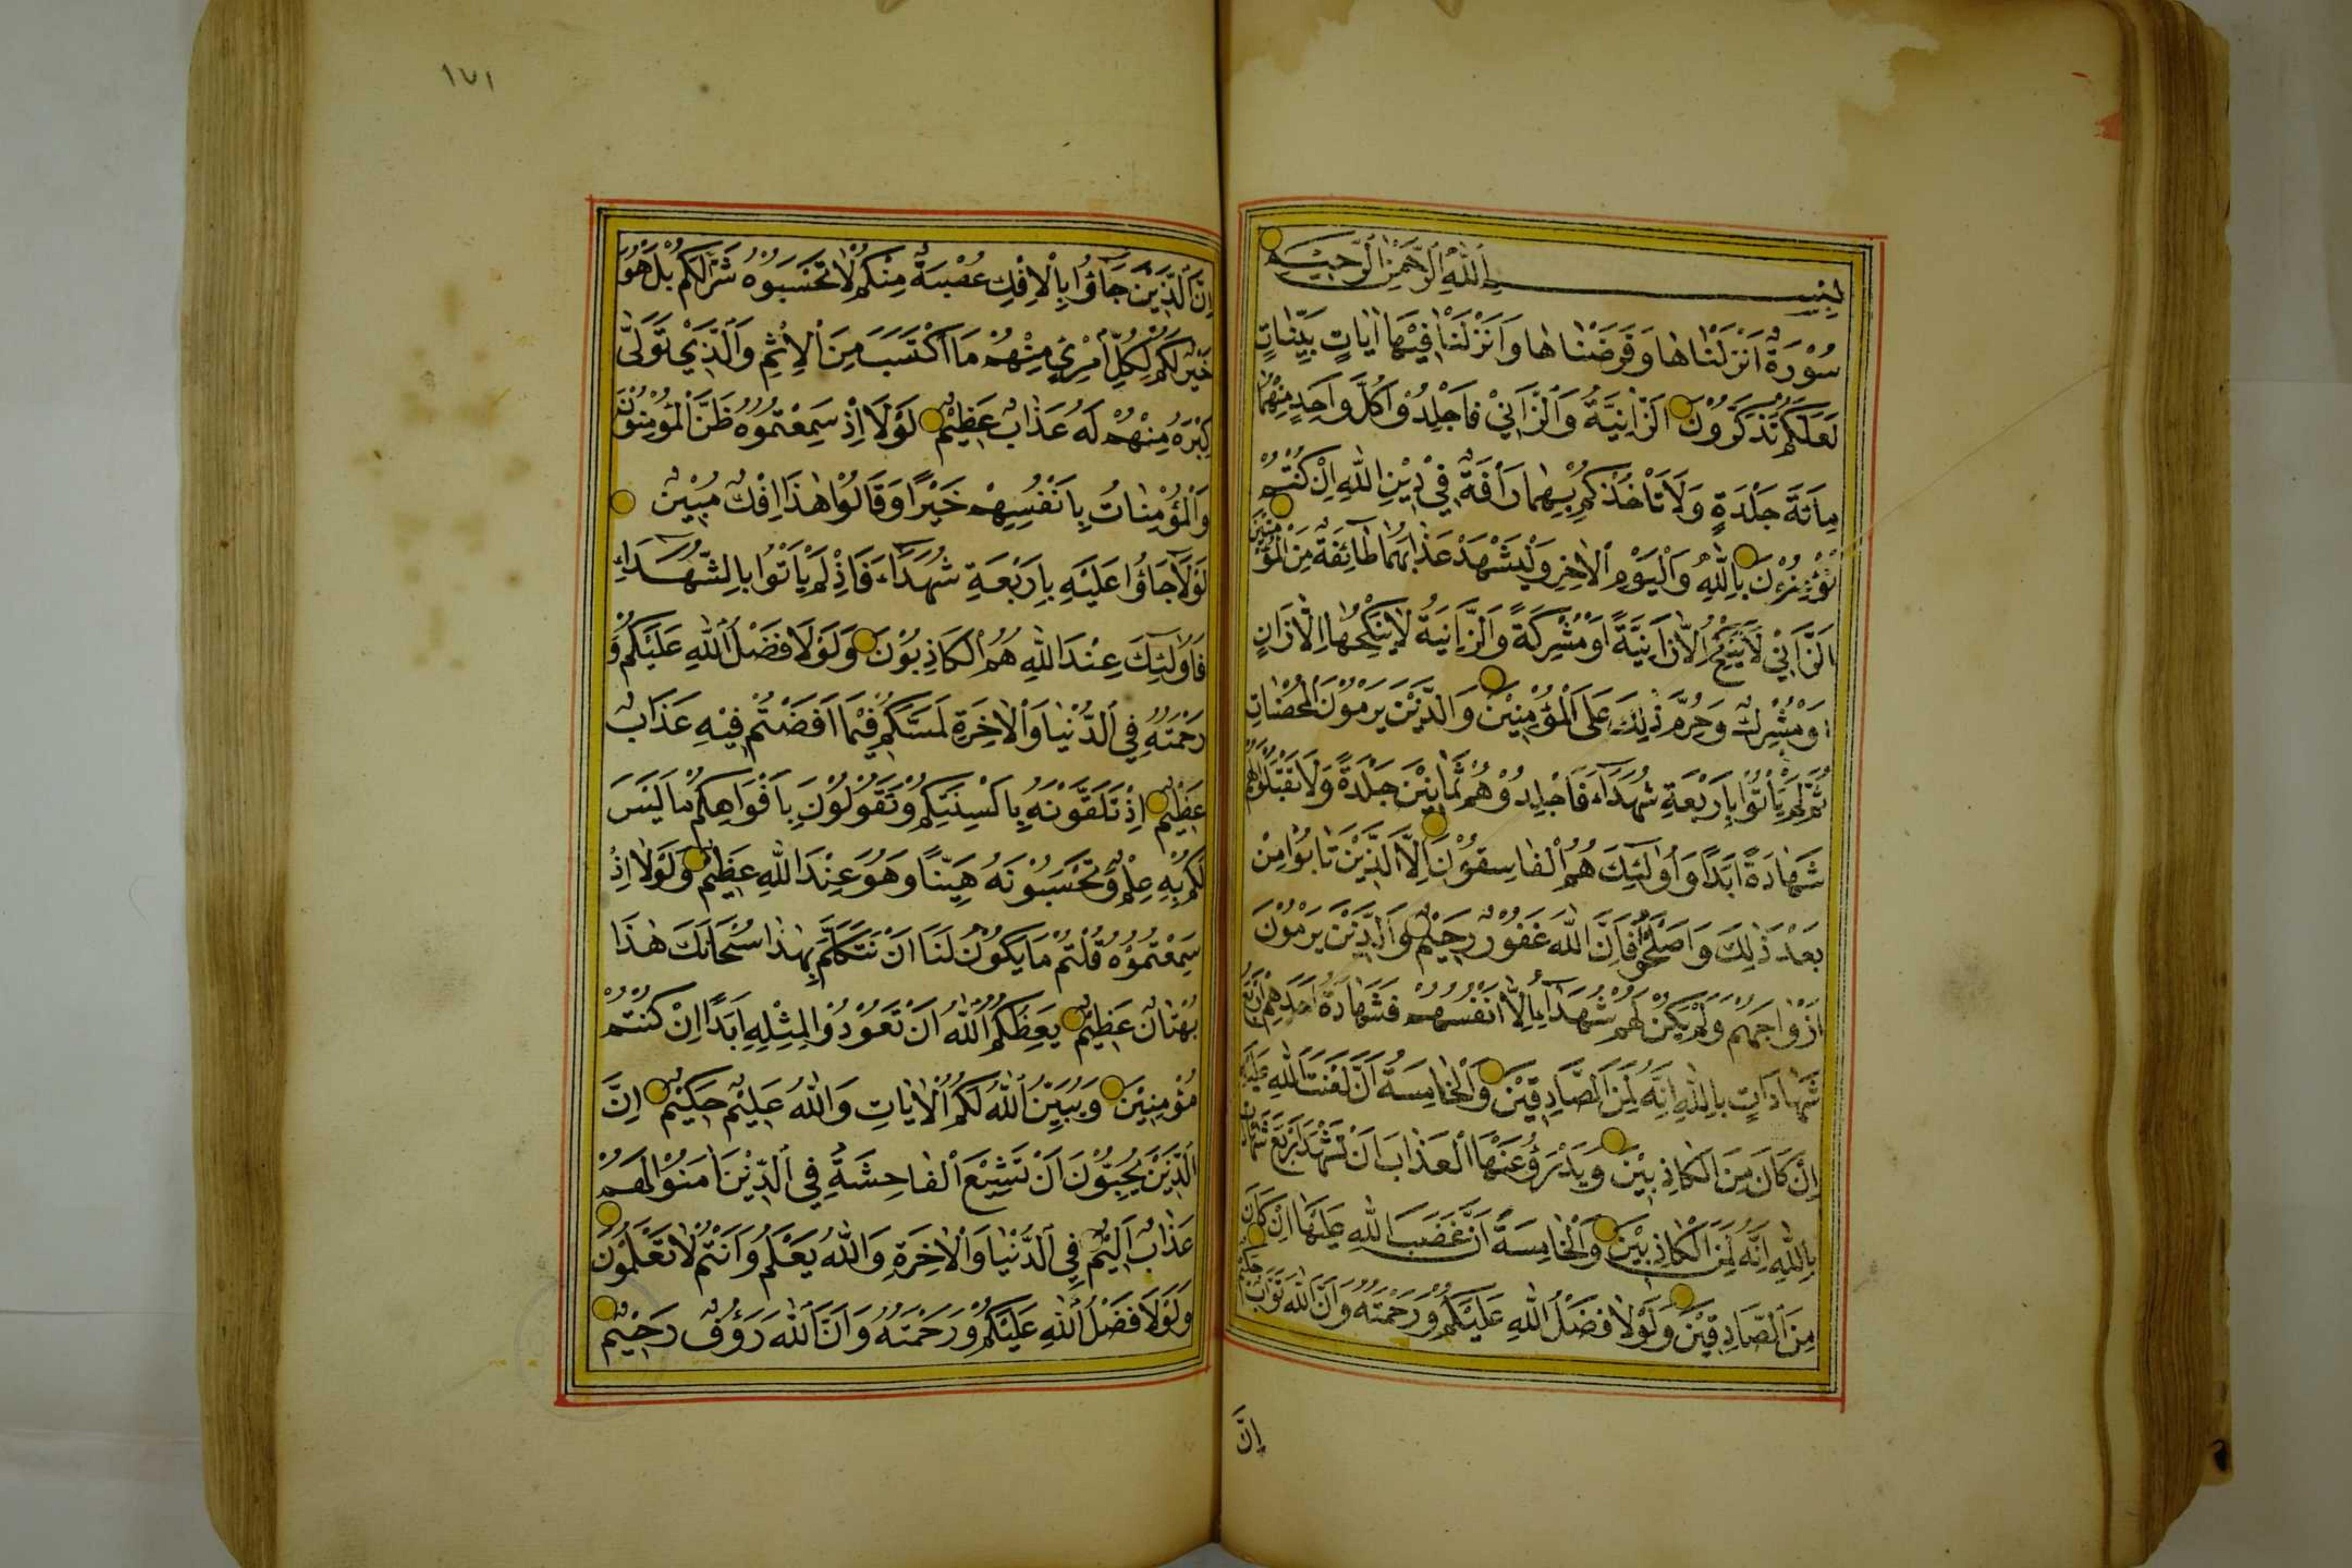 بِسْمِ اللّٰهِ الرَّحْمٰنِ الرَّحِيْمِ
سُوْرَةٌ اَنْزَلْنَاهَا وَفَرَضْنَاهَا وَاَنْزَلْنَا فِيْهَا اٰيَاتٍ بَيِّنَاتٍ
لَعَلَّكُمْ تَذَكَّرُوْنَ اَلزَّانِيَةُ وَالزَّانِيْ فَاجْلِدُوْا كُلَّ وَاحِدٍ مِنْهُمَا
مِأَتَةَ جَلْدَةٍ وَلَا تَأْخُذْكُمْ بِهِمَا رَأْفَةٌ فِيْ دِيْنِ اللّٰهِ اِنْ كُنْتُمْ
تُؤْمِنُوْنَ بِاللّٰهِ وَالْيَوْمِ الْاٰخِرِ وَلْيَشْهَدْ عَذَابَهُمَا طَائِفَةٌ مِنَ الْمُؤْمِنِيْنَ
اَلزَّانِيْ لَا يَنْكِحُ اِلَّا زَانِيَةً اَوْ مُشْرِكَةً وَالزَّانِيَةُ لَا يَنْكِحُهَا اِلَّا زَانٍ
اَوْ مُشْرِكٌ وَحُرِّمَ ذٰلِكَ عَلَى الْمُؤْمِنِيْنَ وَالَّذِيْنَ يَرْمُوْنَ الْمُحْصَنَاتِ
ثُمَّ لَمْ يَأْتُوْا بِاَرْبَعَةِ شُهَدَاءَ فَاجْلِدُوْهُمْ ثَمَانِيْنَ جَلْدَةً وَلَا تَقْبَلُوْا لَهُمْ
شَهَادَةً اَبَدًا وَاُولٰئِكَ هُمُ الْفَاسِقُوْنَ اِلَّا الَّذِيْنَ تَابُوْا مِنْ
بَعْدِ ذٰلِكَ وَاَصْلَحُوْا فَاِنَّ اللّٰهَ غَفُوْرٌ رَحِيْمٌ وَالَّذِيْنَ يَرْمُوْنَ
اَزْوَاجَهُمْ وَلَمْ يَكُنْ لَهُمْ شُهَدَاءُ اِلَّا اَنْفُسُهُمْ فَشَهَادَةُ اَحَدِهِمْ اَرْبَعُ
شَهَادَاتٍ بِاللّٰهِ اِنَّهُ لَمِنَ الصَّادِقِيْنَ وَالْخَامِسَةُ اَنَّ لَعْنَتَ اللّٰهِ عَلَيْهِ
اِنْ كَانَ مِنَ الْكَاذِبِيْنَ وَيَدْرَؤُ عَنْهَا الْعَذَابَ اَنْ تَشْهَدَ اَرْبَعَ شَهَادَاتٍ
بِاللّٰهِ اِنَّهُ لَمِنَ الْكَاذِبِيْنَ وَالْخَامِسَةَ اَنَّ غَضَبَ اللّٰهِ عَلَيْهَا اِنْ كَانَ
مِنَ الصَّادِقِيْنَ وَلَوْلَا فَضْلُ اللّٰهِ عَلَيْكُمْ وَرَحْمَتُهُ وَاَنَّ اللّٰهَ تَوَّابٌ حَكِيْمٌ
اِنَّ
١٧١
اِنَّ الَّذِيْنَ جَاؤُا بِالْاِفْكِ عُصْبَةٌ مِنْكُمْ لَا تَحْسَبُوْهُ شَرًّا لَكُمْ بَلْ هُوَ
خَيْرٌ لَكُمْ لِكُلِّ امْرِئٍ مِنْهُمْ مَا اكْتَسَبَ مِنَ الْاِثْمِ وَالَّذِيْ تَوَلّٰى
كِبْرَهُ مِنْهُمْ لَهُ عَذَابٌ عَظِيْمٌ لَوْلَا اِذْ سَمِعْتُمُوْهُ ظَنَّ الْمُؤْمِنُوْنَ
وَالْمُؤْمِنَاتُ بِاَنْفُسِهِمْ خَيْرًا وَقَالُوْا هٰذَا اِفْكٌ مُبِيْنٌ
لَوْلَا جَاؤُا عَلَيْهِ بِاَرْبَعَةِ شُهَدَاءَ فَاِذْ لَمْ يَأْتُوْا بِالشُّهَدَاءِ
فَاُولٰئِكَ عِنْدَ اللّٰهِ هُمُ الْكَاذِبُوْنَ وَلَوْلَا فَضْلُ اللّٰهِ عَلَيْكُمْ وَ
رَحْمَتُهُ فِي الدُّنْيَا وَالْاٰخِرَةِ لَمَسَّكُمْ فِيْمَا اَفَضْتُمْ فِيْهِ عَذَابٌ
عَظِيْمٌ اِذْ تَلَقَّوْنَهُ بِاَلْسِنَتِكُمْ وَتَقُوْلُوْنَ بِاَفْوَاهِكُمْ مَا لَيْسَ
لَكُمْ بِهِ عِلْمٌ وَتَحْسَبُوْنَهُ هَيِّنًا وَهُوَ عِنْدَ اللّٰهِ عَظِيْمٌ وَلَوْلَا اِذْ
سَمِعْتُمُوْهُ قُلْتُمْ مَا يَكُوْنُ لَنَا اَنْ نَتَكَلَّمَ بِهٰذَا سُبْحَانَكَ هٰذَا
بُهْتَانٌ عَظِيْمٌ يَعِظُكُمُ اللّٰهُ اَنْ تَعُوْدُوْا لِمِثْلِهِ اَبَدًا اِنْ كُنْتُمْ
مُؤْمِنِيْنَ وَيُبَيِّنُ اللّٰهُ لَكُمُ الْاٰيَاتِ وَاللّٰهُ عَلِيْمٌ حَكِيْمٌ اِنَّ
الَّذِيْنَ يُحِبُّوْنَ اَنْ تَشِيْعَ الْفَاحِشَةُ فِي الَّذِيْنَ اٰمَنُوْا لَهُمْ
عَذَابٌ اَلِيْمٌ فِي الدُّنْيَا وَالْاٰخِرَةِ وَاللّٰهُ يَعْلَمُ وَاَنْتُمْ لَا تَعْلَمُوْنَ
وَلَوْلَا فَضْلُ اللّٰهِ عَلَيْكُمْ وَرَحْمَتُهُ وَاَنَّ اللّٰهَ رَؤُفٌ رَحِيْمٌ